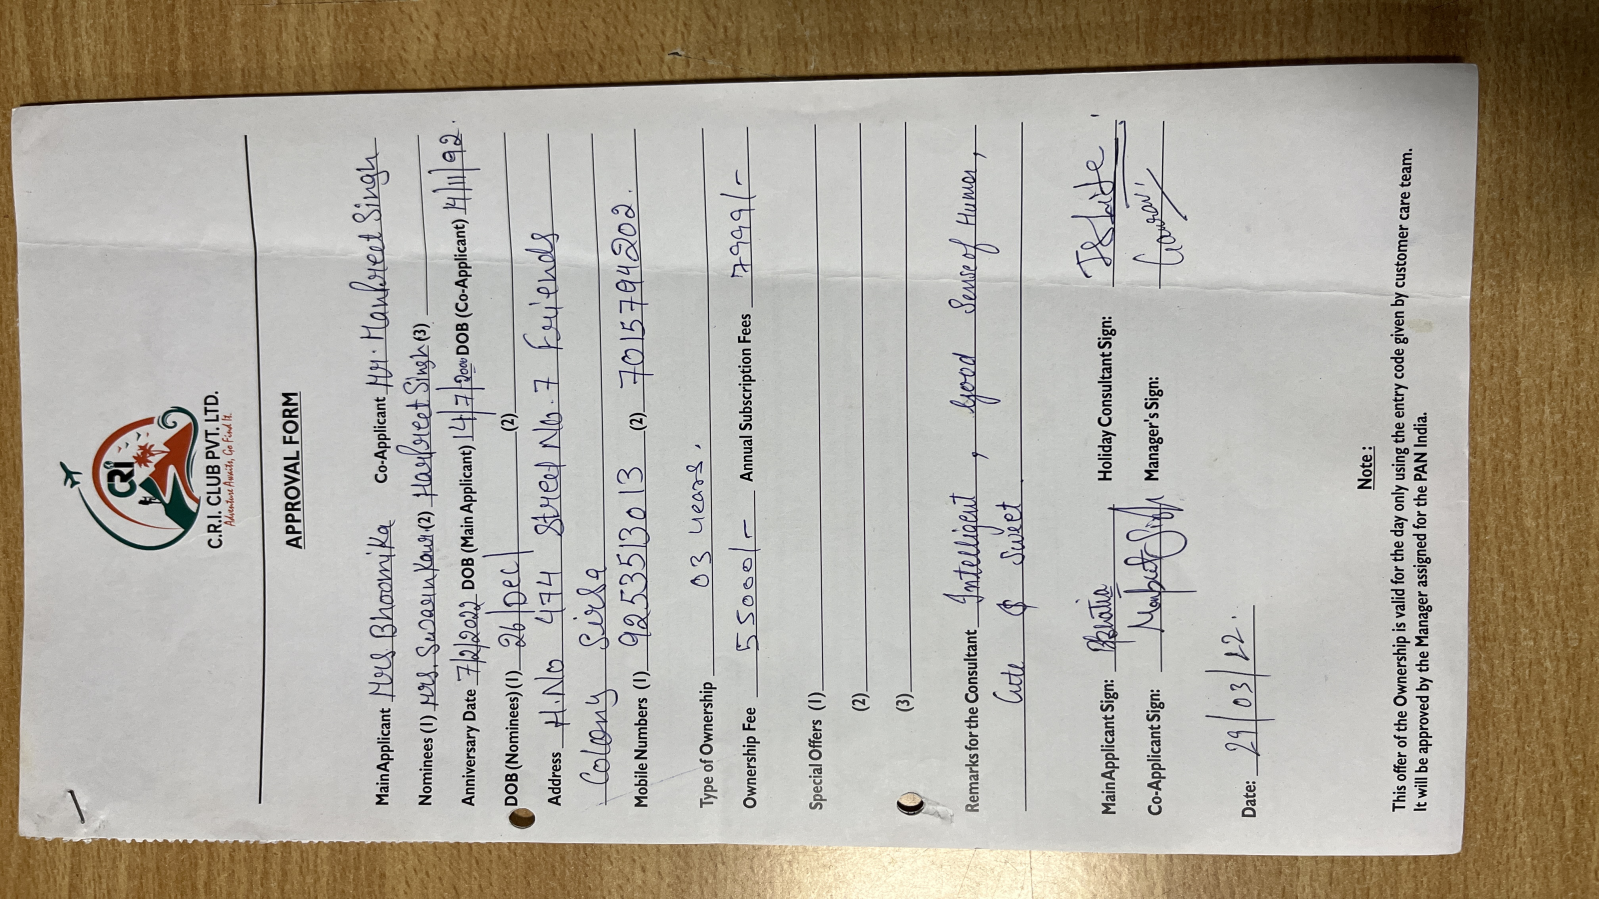 CRI
C.R.I. CLUB PVT. LTD.
Adventure Awaits, Go Find It.
APPROVAL FORM
Main Applicant Mrs Bhoomika Co-Applicant Mr. Manpreet Singh
Nominees (1) Mrs. Swarn Kaur (2) Harpreet Singh (3)
Anniversary Date 7/2/2022 DOB (Main Applicant) 14/7/2000 DOB (Co-Applicant) 14/11/92.
DOB (Nominees) (1) 26/Dec/ (2)
Address H.No 474 Street No. 7 Friends
Colony Sirsa
Mobile Numbers (1) 9253513013 (2) 7015794202.
Type of Ownership 03 years.
Ownership Fee 55000/- Annual Subscription Fees 7999/-
Special Offers (1)
(2)
(3)
Remarks for the Consultant Intelligent, Good Sense of Humor,
Cute & Sweet.
Main Applicant Sign: Holiday Consultant Sign:
Co-Applicant Sign: Manpreet Singh Manager's Sign: Gaurav
Date: 29/03/22.
Note :
This offer of the Ownership is valid for the day only using the entry code given by customer care team.
It will be approved by the Manager assigned for the PAN India.